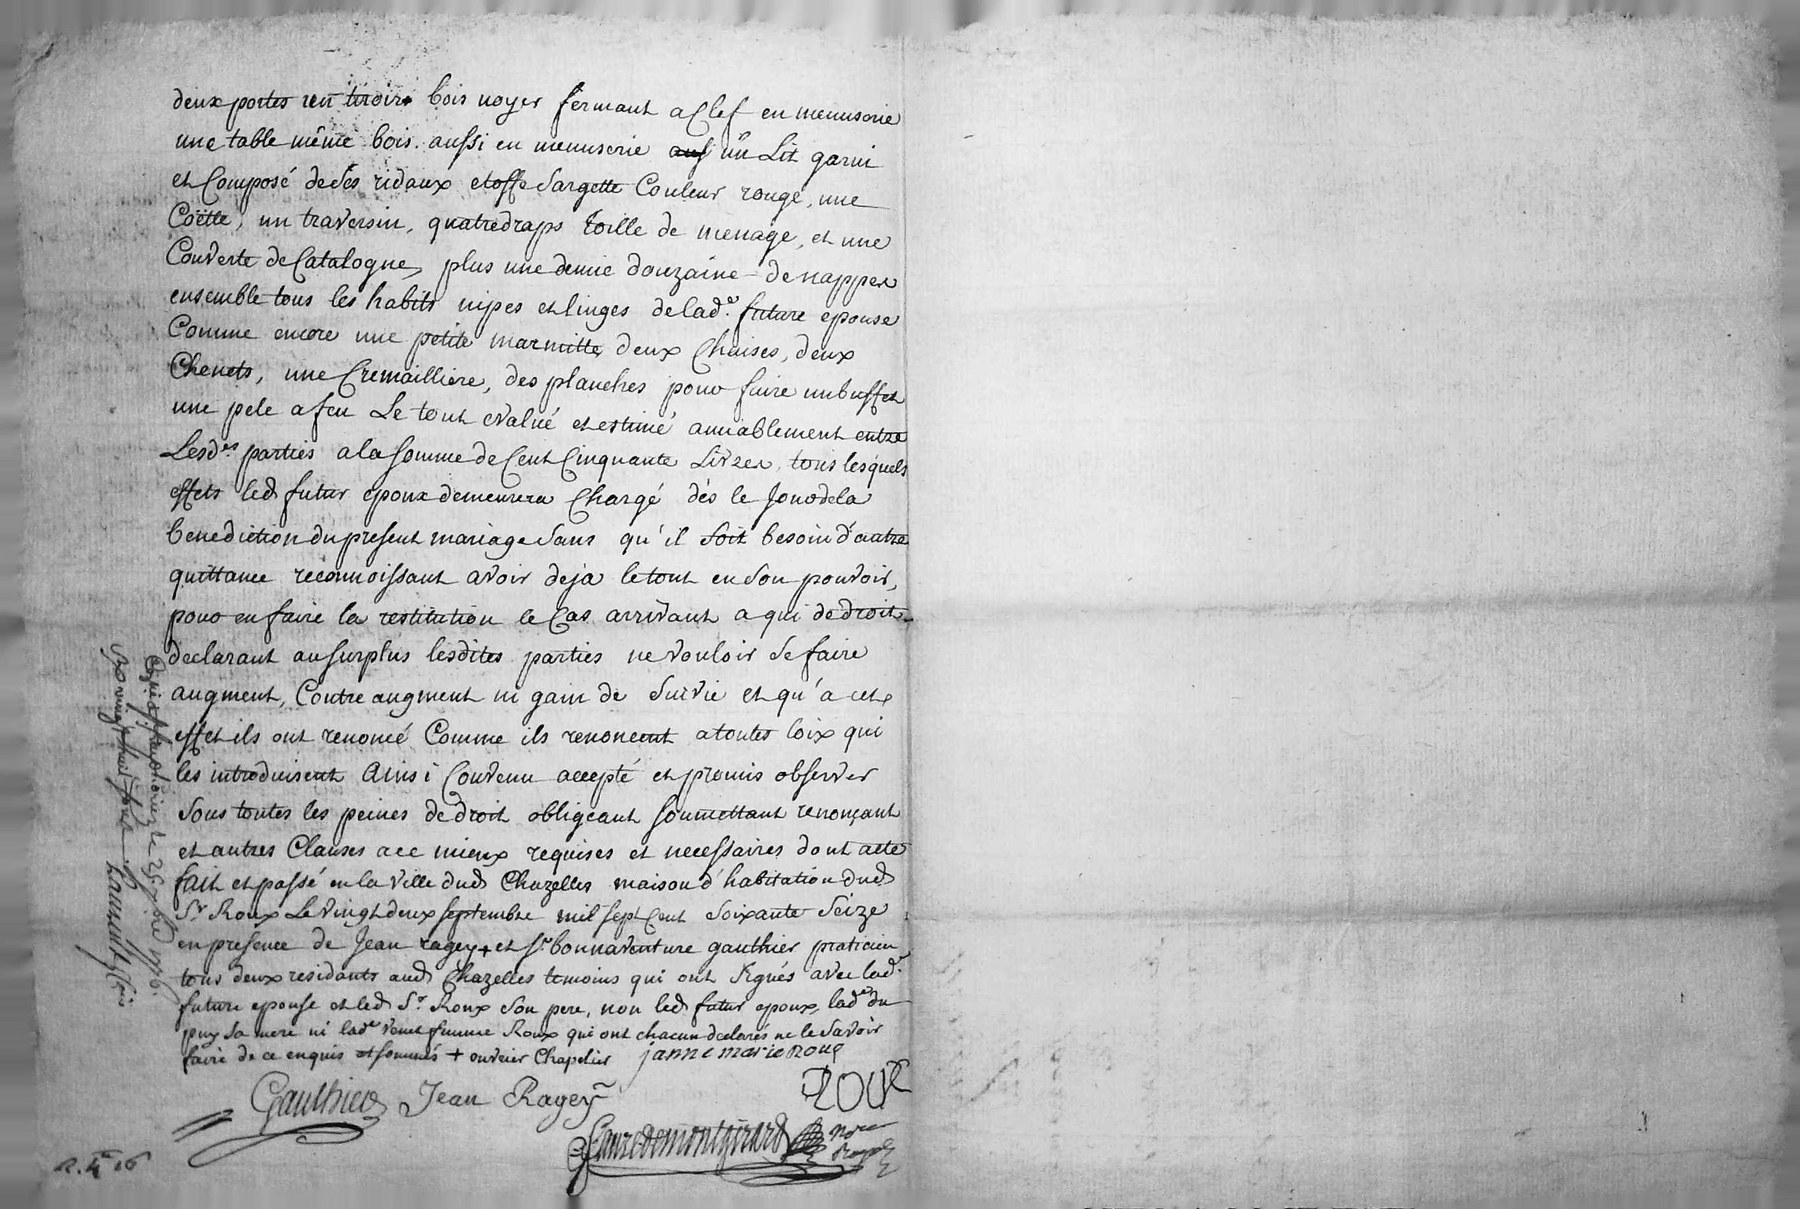 deux portes un tiroir bois noyer fermant a Clef en menuserie
une table même bois aussi en menuserie un Lit garni
et Composé de ses ridaux etoffe Sargette Couleur rouge, une
Coëtte, un traversin, quatre draps toille de menage, et une
Couverte de Catalogne, plus une demie douzaine de nappes
ensemble tous les habits nipes et linges de lad.e future epouse
Comme encore une petite marmitte, deux Chaises, deux
Chenets, une Cremailliere, des planches pour faire un buffet
une pele a feu Le tout evalué et estimé amiablement entre
Lesd.es parties a la somme de Cent Cinquante Livres, tous lesquels
effets led futur epoux demeurera Chargé dès le Jour de la
benediction du present mariage sans qu'il soit besoin d'autre
quittance reconnoissant avoir deja le tout en son pouvoir,
pour en faire la restitution le Cas arrivant a qui de droit
declarant au surplus lesdites parties ne vouloir se faire
augment, Contre augment ni gain de survie et qu'a cet
effet ils ont renoncé Comme ils renoncent a toutes loix qui
les introduisent Ainsi Convenu accepté et promis observer
sous toutes les peines de droit obligeant soumettant renonçant
et autres Clauses a ce mieux requises et necessaires dont acte
fait et passé en la ville dud Chazelles maison d'habitation dud
Sr Roux Le vingt deux septembre mil sept Cent soixante Seize
en presence de Jean ragey + et sr. bonnaventure gauthier praticien
tous deux residants aud Chazelles temoins qui ont signés avec lad.e
future epouse et led Sr Roux son pere, non led futur epoux, lad.e du
puy sa mere ni lad.e femme Roux qui ont chacun declarés ne le savoir
faire de ce enquis et sommés + ouvrier Chapelier janne marie roux
Roux
Gauthier Jean Ragey